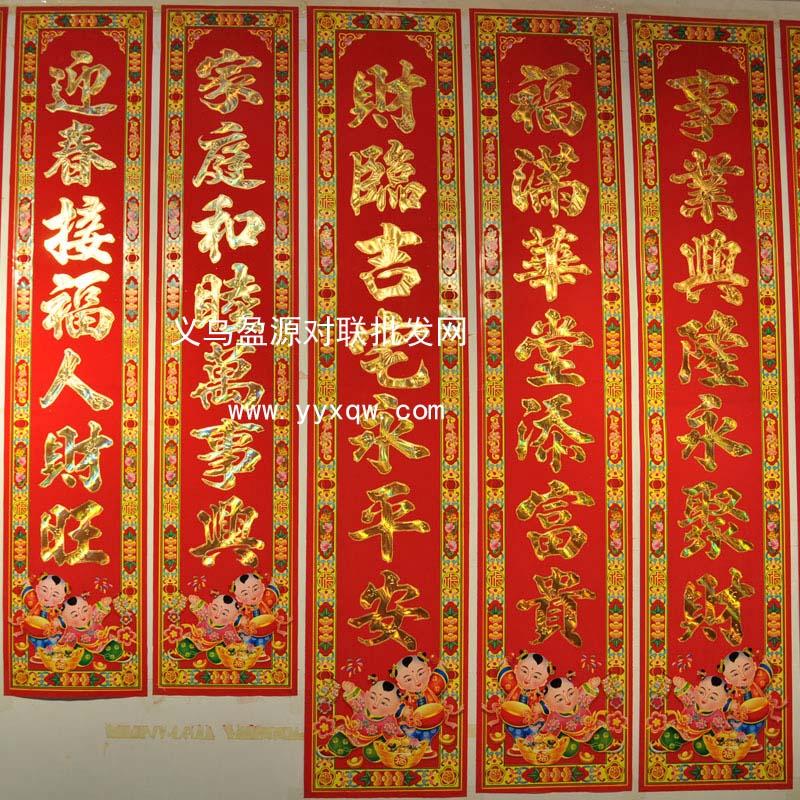 迎春接福人財旺
家庭和睦萬事興
財臨吉宅永平安
福滿華堂添富貴
事業興隆永聚財
义乌盈源对联批发网
www.yyxqw.com